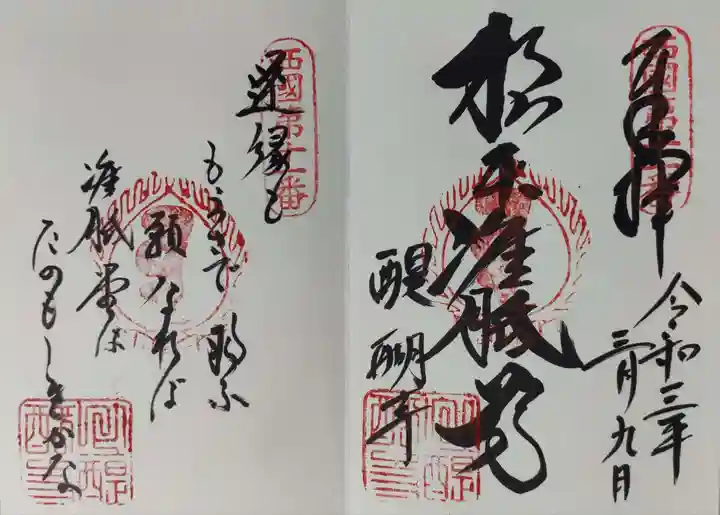 西國第十一番
奉拝
令和三年
三月九日
根本准胝尊
醍醐寺
西國第十一番
逆縁も
もらさで 救ふ
願なれば
准胝堂は
たのもしきかな